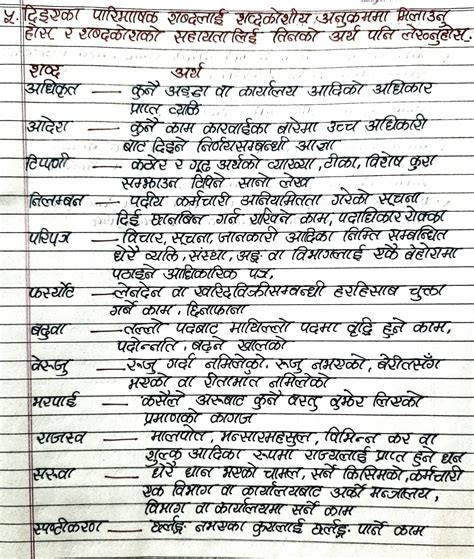 ५. दिइएका पारिभाषिक शब्दलाई शब्दकोशीय अनुक्रममा मिलाउनु
होस् र शब्दकोशको सहायता लिई तिनको अर्थ पनि लेख्नुहोस् ।
शब्द अर्थ
अधिकृत — कुनै अड्डा वा कार्यालय आदिको अधिकार
प्राप्त व्यक्ति
आदेश — कुनै काम कारवाईका बारेमा उच्च अधिकारी
बाट दिइने निर्णयसम्बन्धी आज्ञा
टिप्पणी — कठोर र गूढ अर्थको व्याख्या, टीका, विशेष कुरा
सम्झाउन टिपिने सानो लेख
निलम्बन — पदीय कर्मचारी अनियमितता गरेको सूचना
दिई छानबिन गर्न गरिने काम, पदाधिकार रोक्का
परिपत्र — विचार, सूचना, जानकारी आदिका निमित्त सम्बन्धित
धेरै व्यक्ति, संस्था, अड्डा वा विभागलाई एकै बेहोरामा
पठाइने आधिकारिक पत्र,
फर्स्योट — लेनदेन वा खरिदविक्रीसम्बन्धी हरहिसाब चुक्ता
गर्ने काम, छिनाफाना
बढुवा — तल्लो पदबाट माथिल्लो पदमा वृद्धि हुने काम,
पदोन्नति, बढ्ने खालको
बेरुजु — रुजु गर्दा नमिलेको, रुजु नभएको, बेरीतसँग
भएको वा रीतभात नमिलेको
भरपाई — कसैले अरूबाट कुनै वस्तु बुझेर लिएको
प्रमाणको कागज
राजस्व — मालपोत, भन्सारमहसुल, विभिन्न कर वा
शुल्क आदिका रूपमा राज्यलाई प्राप्त हुने धन
सरुवा — धेरै धान भएको चामल, सर्ने किसिमको, कर्मचारी
एक विभाग वा कार्यालयबाट अर्को मन्त्रालय,
विभाग वा कार्यालयमा सर्ने काम
स्पष्टीकरण — छर्लङ्ग नभएका कुरालाई छर्लङ्ग पार्ने काम